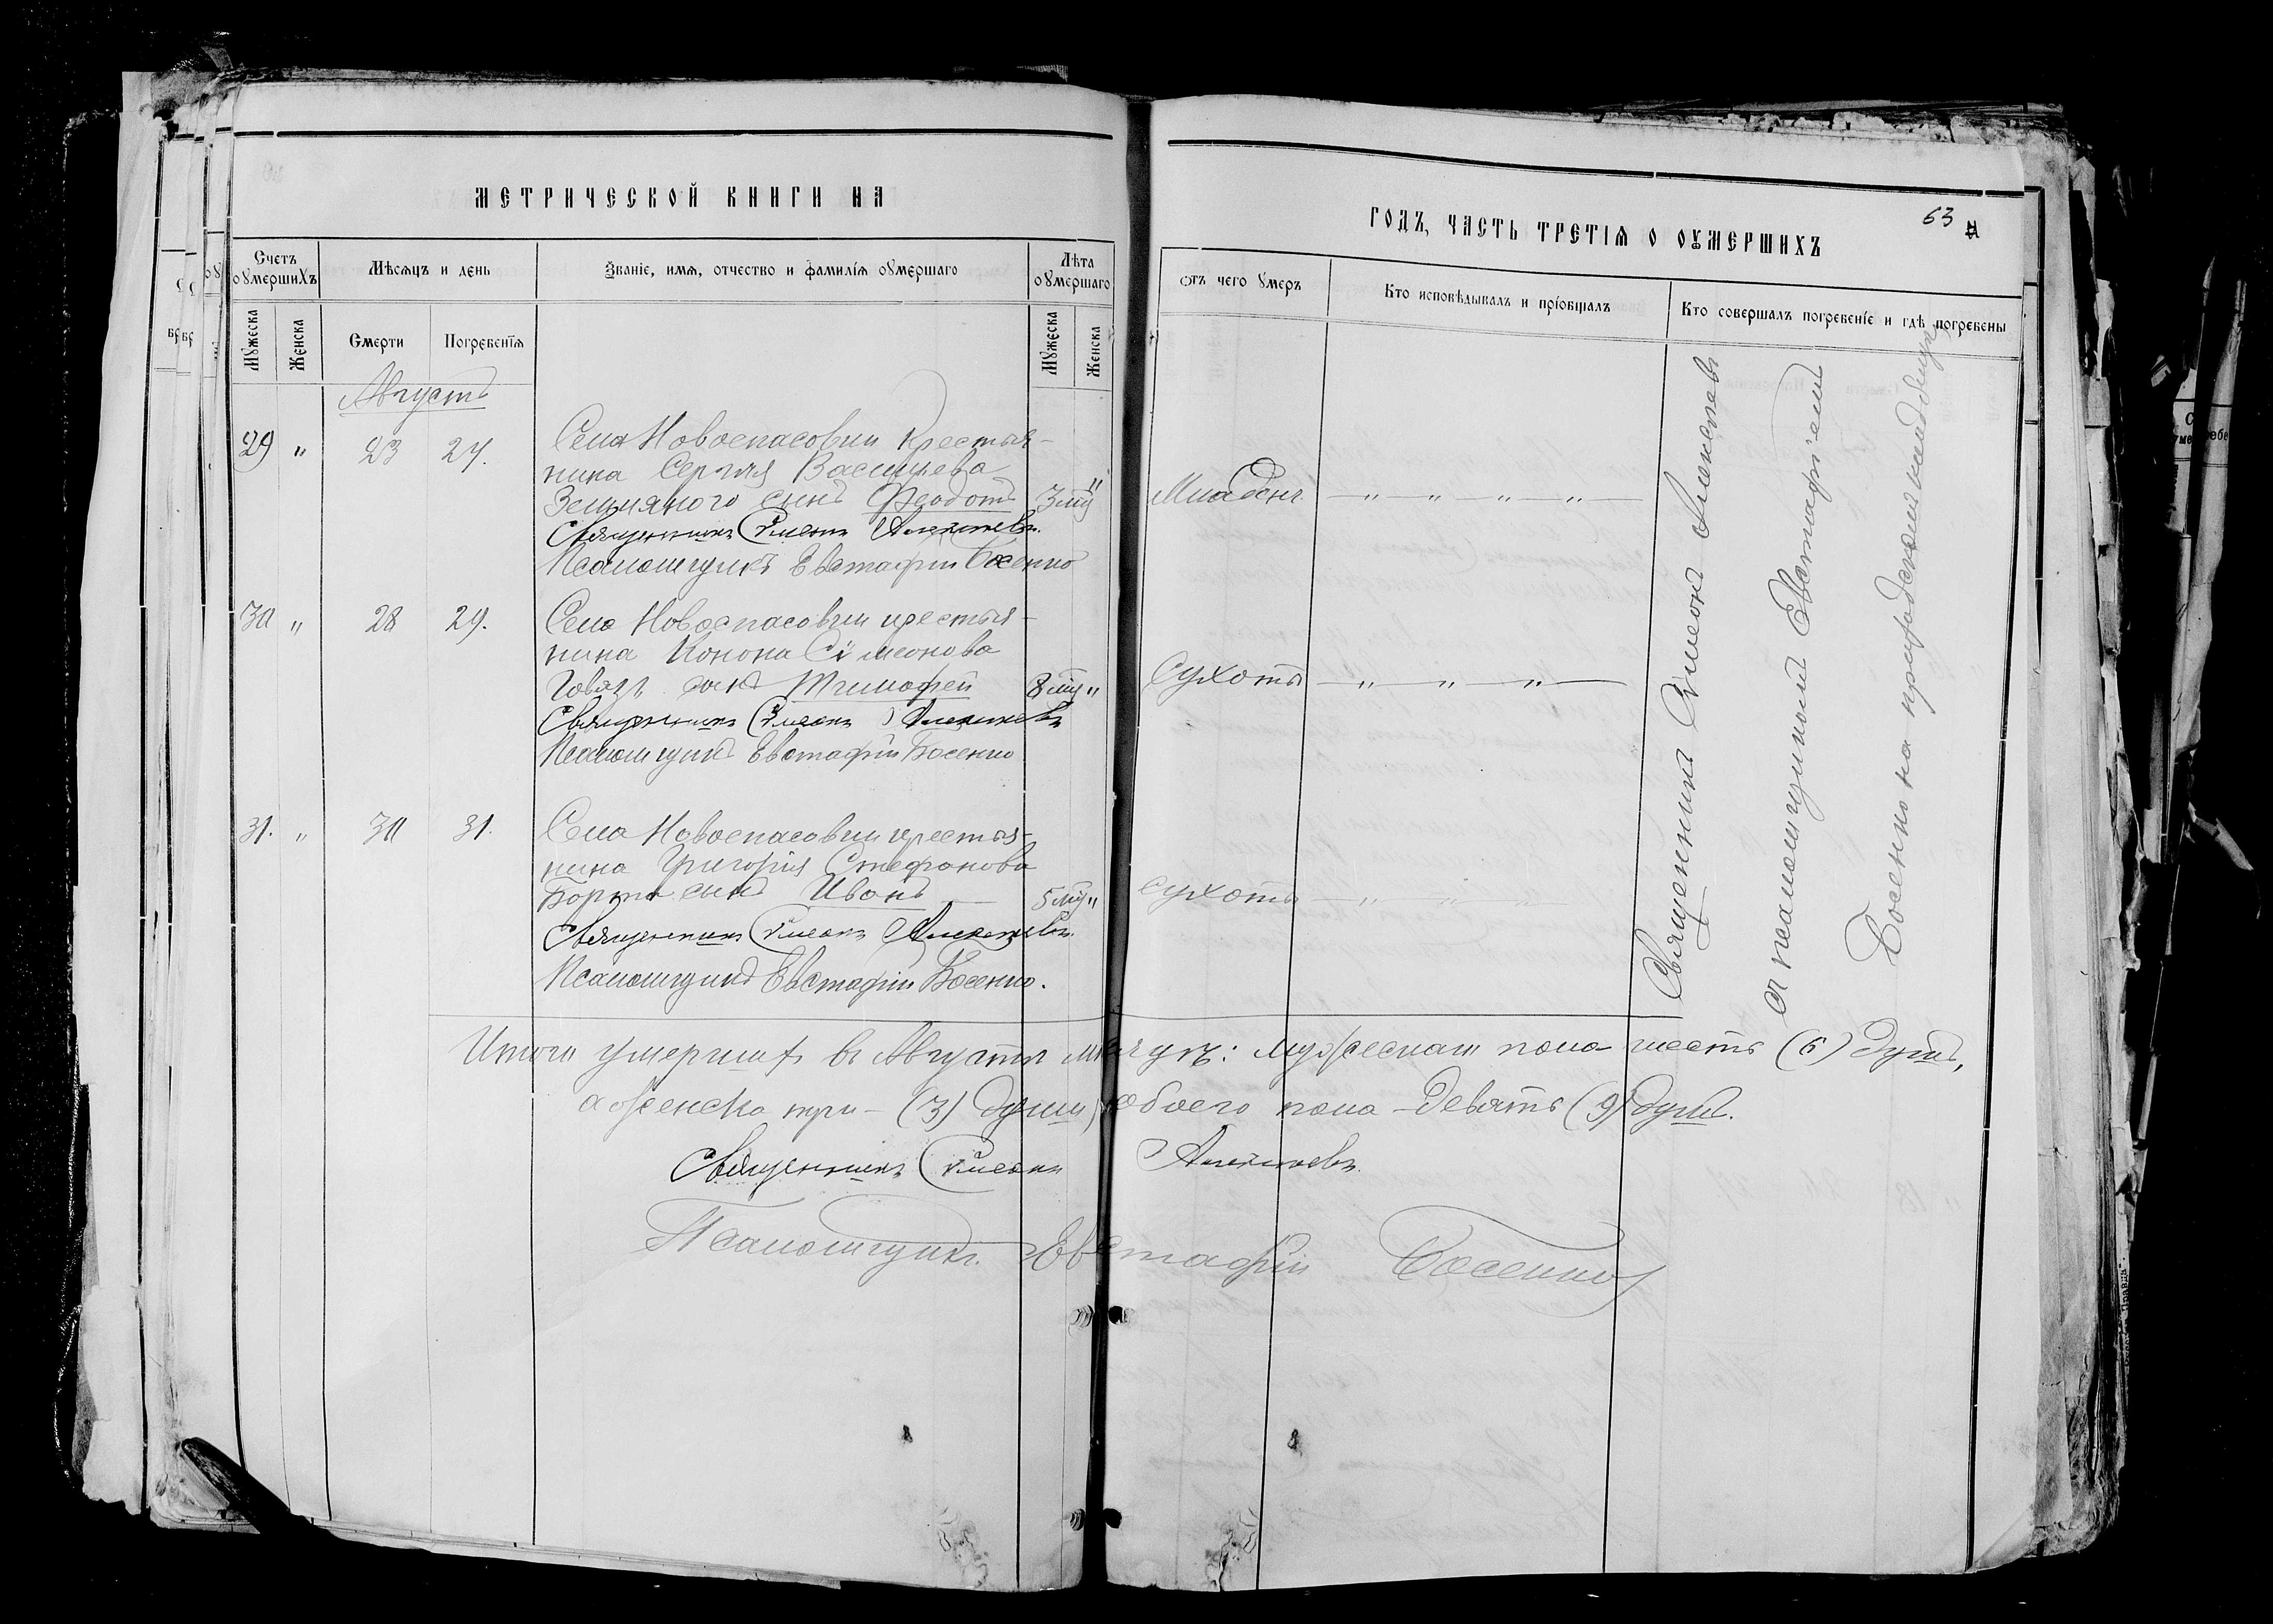 МЕТРИЧЕСКОЙ КНИГИ НА
Счетъ оумершихъ
Мѣсяцъ и день
Званіе, имя, отчество и фамилія оумершаго
Лѣта оумершаго
Мужеска
Женска
Смерти
Погребенія
Мужеска
Женска
Августъ
29 " 23 24.
Села Новоспасовки крестья-
нина Сергія Васильева
сынъ Феодотъ 3 мц "
Священникъ Симеонъ Алексѣевъ.
Псаломщикъ Евстафій Босенко
30 " 28 29.
Села Новоспасовки крестья-
нина Конона Симеонова
Говязъ сынъ Тимофей 8 мц "
Священникъ Симеонъ Алексѣевъ
Псаломщикъ Евстафій Босенко
31. " 30 31.
Села Новоспасовки крестья-
нина Григорія Стефанова
Борта сынъ Иванъ 5 мц "
Священникъ Симеонъ Алексѣевъ.
Псаломщикъ Евстафій Босенко.
63
ГОДЪ, ЧАСТЬ ТРЕТІЯ О ОУМЕРШИХЪ
Отъ чего умеръ
Кто исповѣдывалъ и пріобщалъ
Кто совершалъ погребеніе и гдѣ погребены
Младенч. — " — " — " — " —
Сухоты — " — " — " —
Сухоты — " — " — " —
Священникъ Симеонъ Алексѣевъ
съ псаломщикомъ Евстафіемъ
Босенко на приходскомъ кладбищѣ
Итого умершихъ въ Августѣ мѣсяцѣ: мужескаго пола шесть (6) душъ,
а женска три - (3) души, обоего пола - девять (9) душъ.
Священникъ Симеонъ Алексѣевъ.
Псаломщикъ Евстафій Босенко